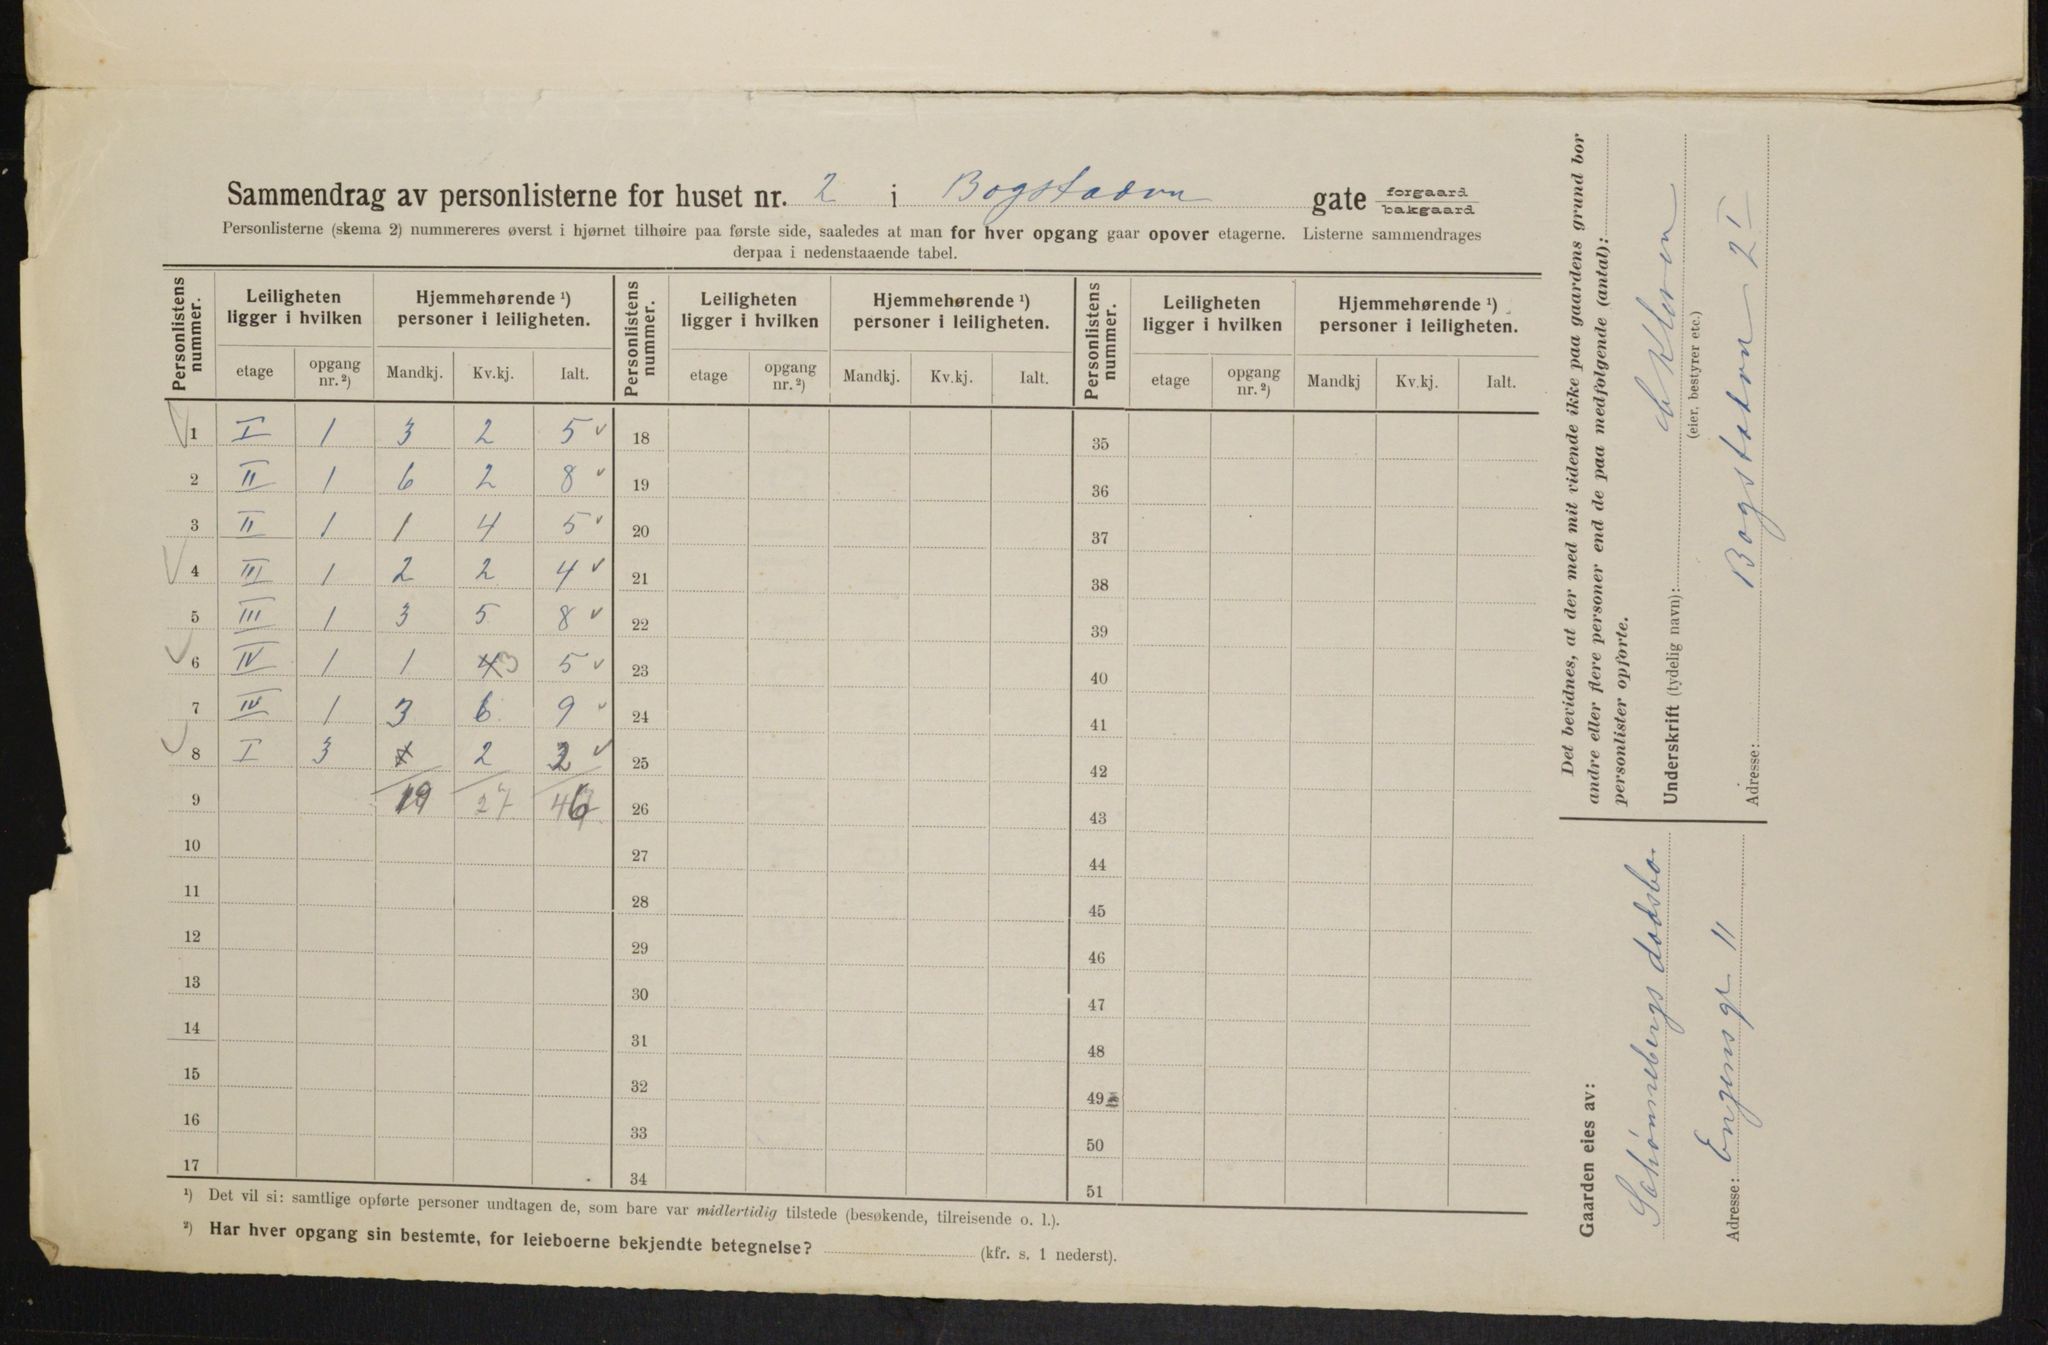 Sammendrag av personlisterne for huset nr. 2 i Bogstadvn gate forgaard bakgaard
Personlisterne (skema 2) nummereres øverst i hjørnet tilhøire paa første side, saaledes at man for hver opgang gaar opover etagerne. Listerne sammendrages
derpaa i nedenstaaende tabel.
Personlistens nummer. Leiligheten ligger i hvilken Hjemmehørende ¹) personer i leiligheten. Personlistens nummer. Leiligheten ligger i hvilken Hjemmehørende ¹) personer i leiligheten. Personlistens nummer. Leiligheten ligger i hvilken Hjemmehørende ¹) personer i leiligheten.
etage opgang nr. ²) Mandkj. Kv.kj. Ialt. etage opgang nr. ²) Mandkj. Kv.kj. Ialt. etage opgang nr. ²) Mandkj Kv.kj. Ialt.
1 I 1 3 2 5 18 35
2 II 1 6 2 8 19 36
3 II 1 1 4 5 20 37
4 III 1 2 2 4 21 38
5 III 1 3 5 8 22 39
6 IV 1 1 4 3 5 23 40
7 IV 1 3 6 9 24 41
8 I 3 2 2 25 42
9 19 27 46 26 43
10 27 44
11 28 45
12 29 46
13 30 47
14 31 48
15 32 49
16 33 50
17 34 51
¹) Det vil si: samtlige opførte personer undtagen de, som bare var midlertidig tilstede (besøkende, tilreisende o. l.).
²) Har hver opgang sin bestemte, for leieboerne bekjendte betegnelse? (kfr. s. 1 nederst).
Det bevidnes, at der med mit vidende ikke paa gaardens grund bor
andre eller flere personer end de paa medfolgende (antal):
personlister opforte.
Underskrift (tydelig navn):
(eier, bestyrer etc.)
Adresse: Bogstadvn 2 I
Gaarden eies av:
Schönnebergs dødsbo.
Adresse: Eugens gt 11